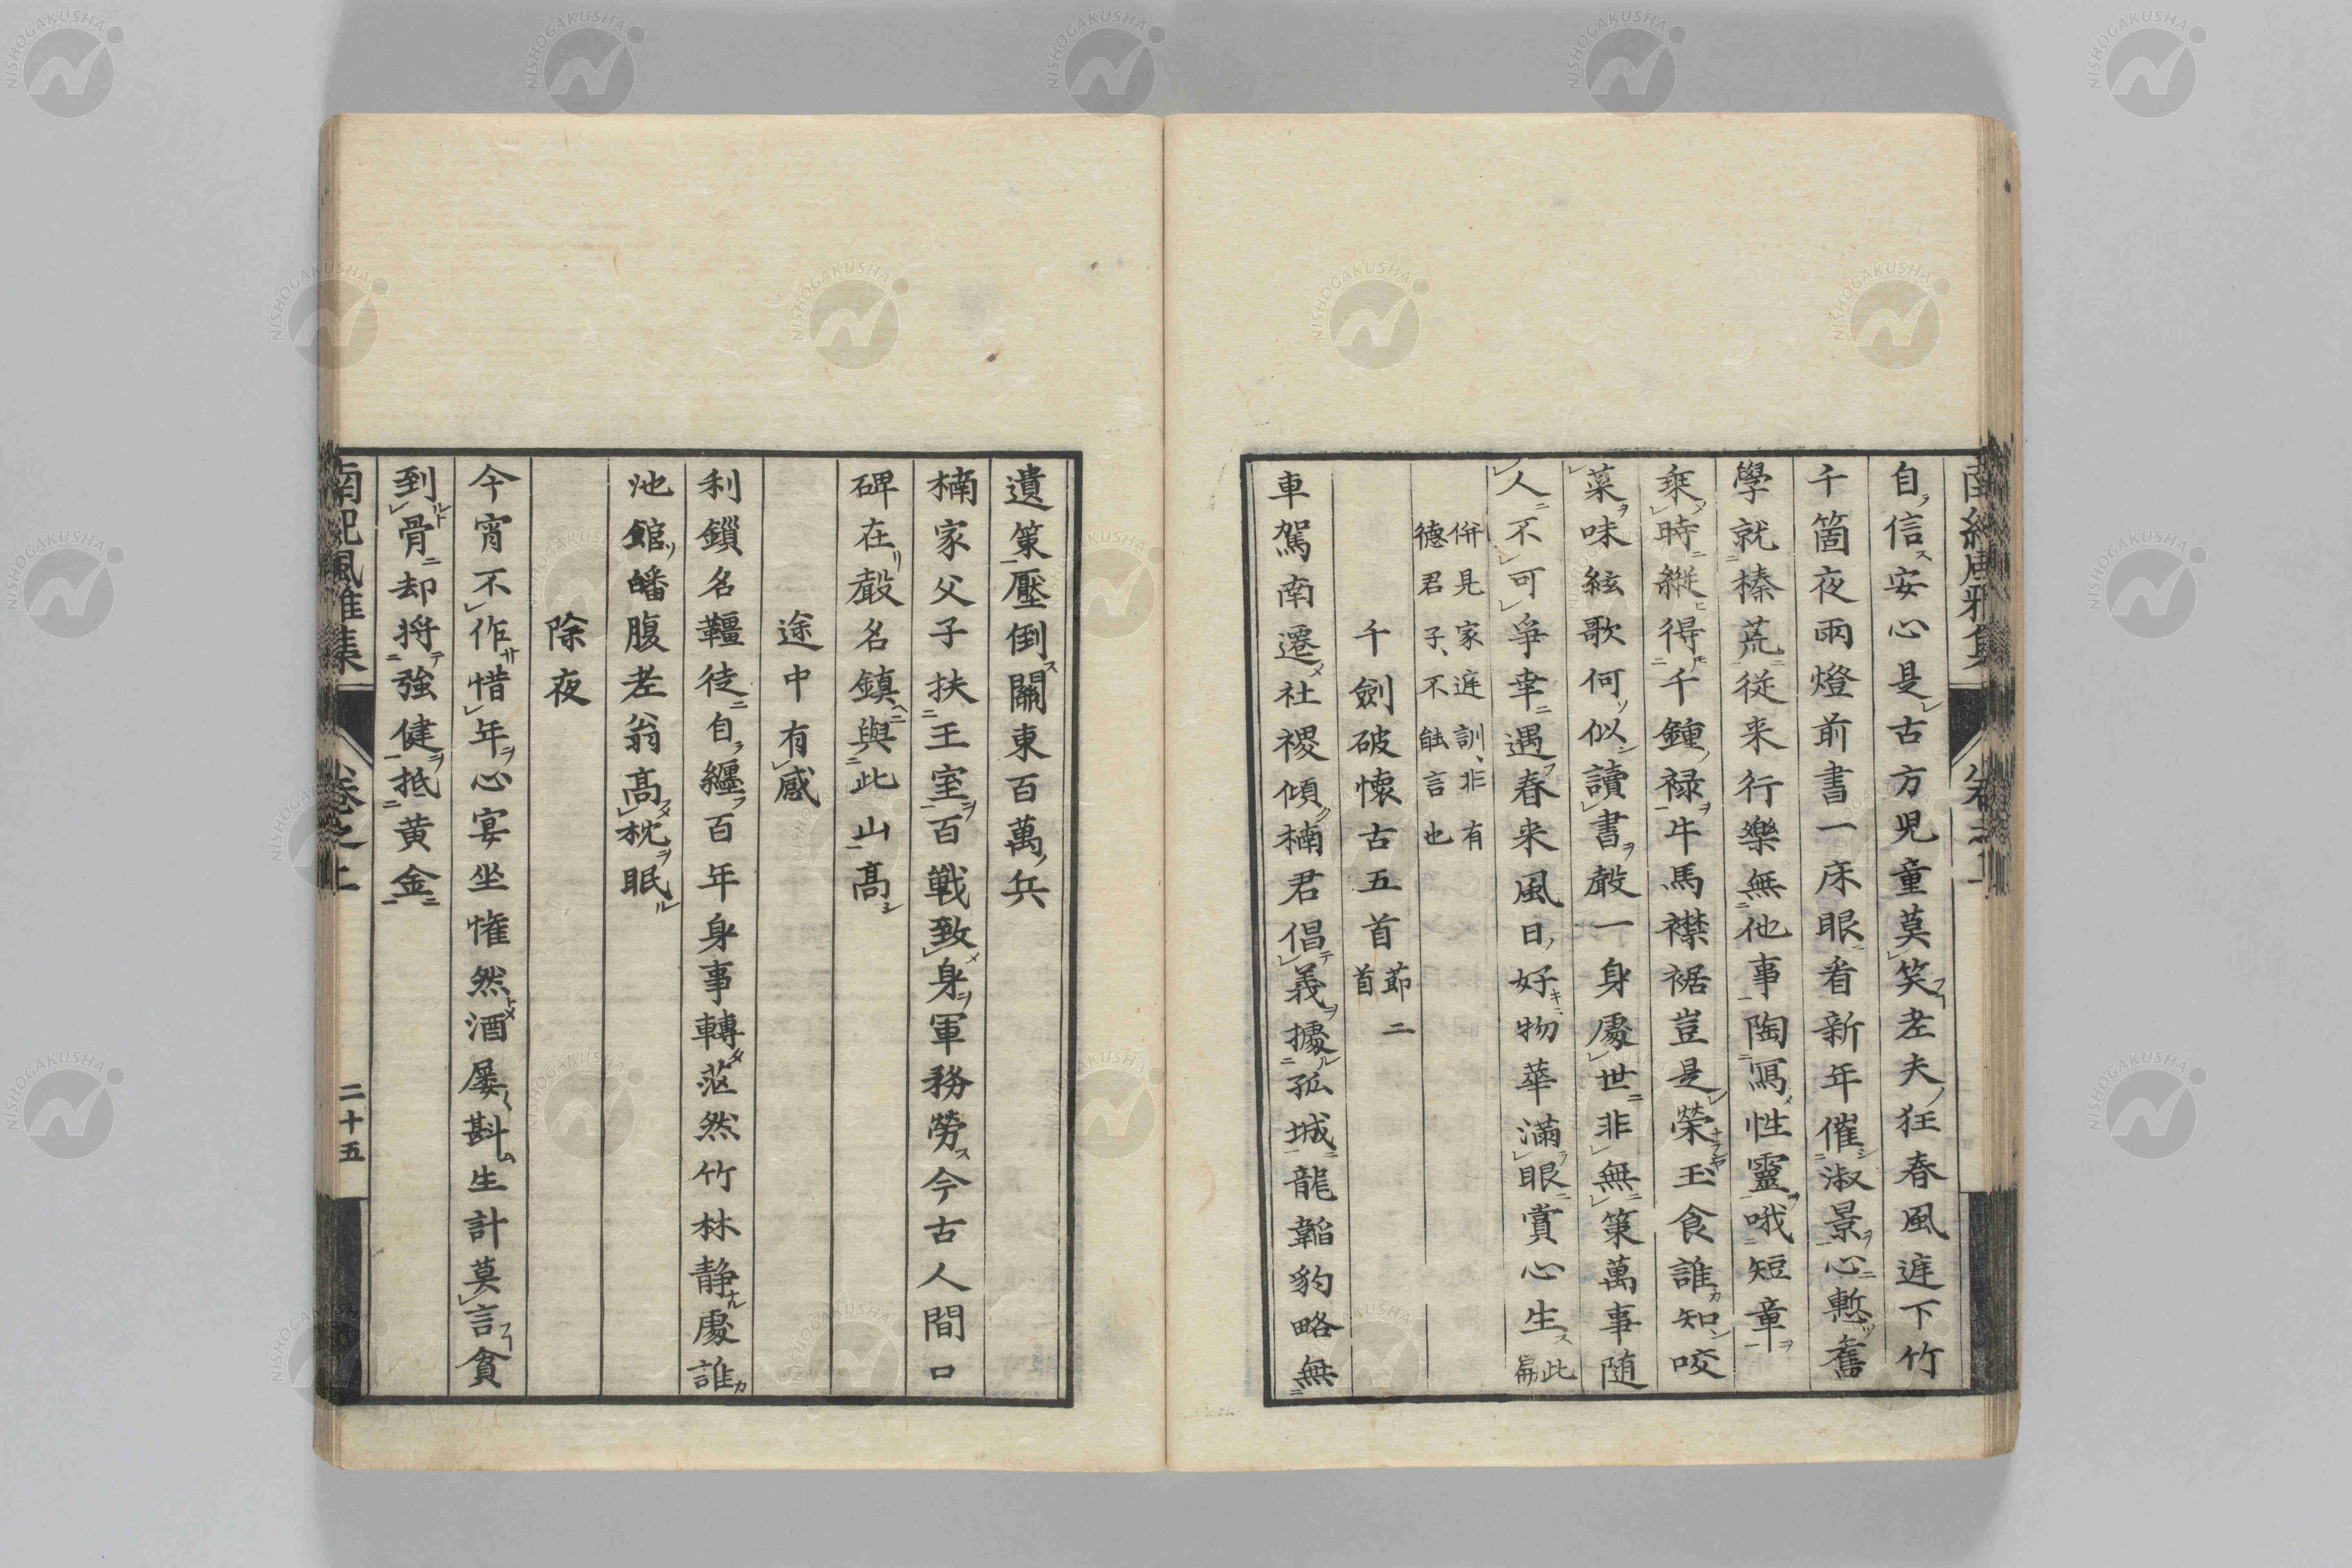 自信安心是古方児童莫笑老夫狂春風庭下竹
千箇夜雨燈前書一床眼看新年催淑景心慙舊
學就榛荒従来行樂無他事陶寫性靈哦短章
乗時縦得千鍾禄牛馬襟裾豈是榮玉食誰知咬
菜味絃歌何似讀書聲一身處世非無策萬事随
人不可爭幸遇春来風日好物華滿眼賞心生此扁
併見家庭訓、非有
德君子、不能言也
千劍破懷古五首節二首
車駕南遷社稷傾楠君倡義據孤城龍韜豹略無
遺策壓倒關東百萬兵
楠家父子扶王室百戰致身軍務勞今古人間口
碑在聲名鎮與此山高
途中有感
利鎖名韁徒自纏百年身事轉茫然竹林静處誰
池館皤腹老翁高枕眠
除夜
今宵不作惜年心宴坐惟然酒屡斟生計莫言貧
到骨却將強健抵黄金
南紀風雅集
卷之上
二十五
NISHOGAKUSHA